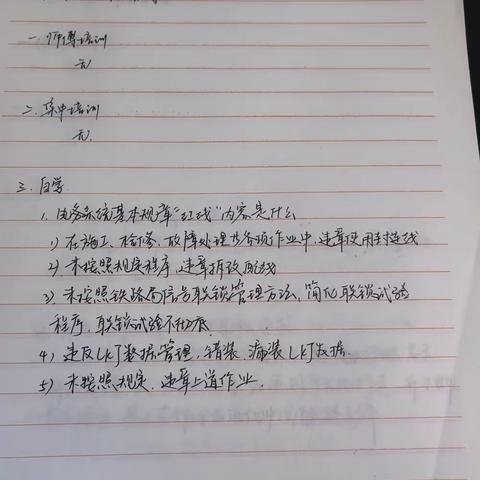 一、师傅培训
无
二、集中培训
无.
三、自学
1、电务系统基本规章"红线"内容是什么
1) 在施工、检修、故障处理等各项作业中,违章使用封连线
2) 未按照规定程序,违章拆改配线
3) 未按照铁路局信号联锁管理方法,简化联锁试验
程序,联锁试验不彻底.
4) 违反LKJ数据管理,错装、漏装LKJ数据.
5) 未按照规定,违章上道作业.